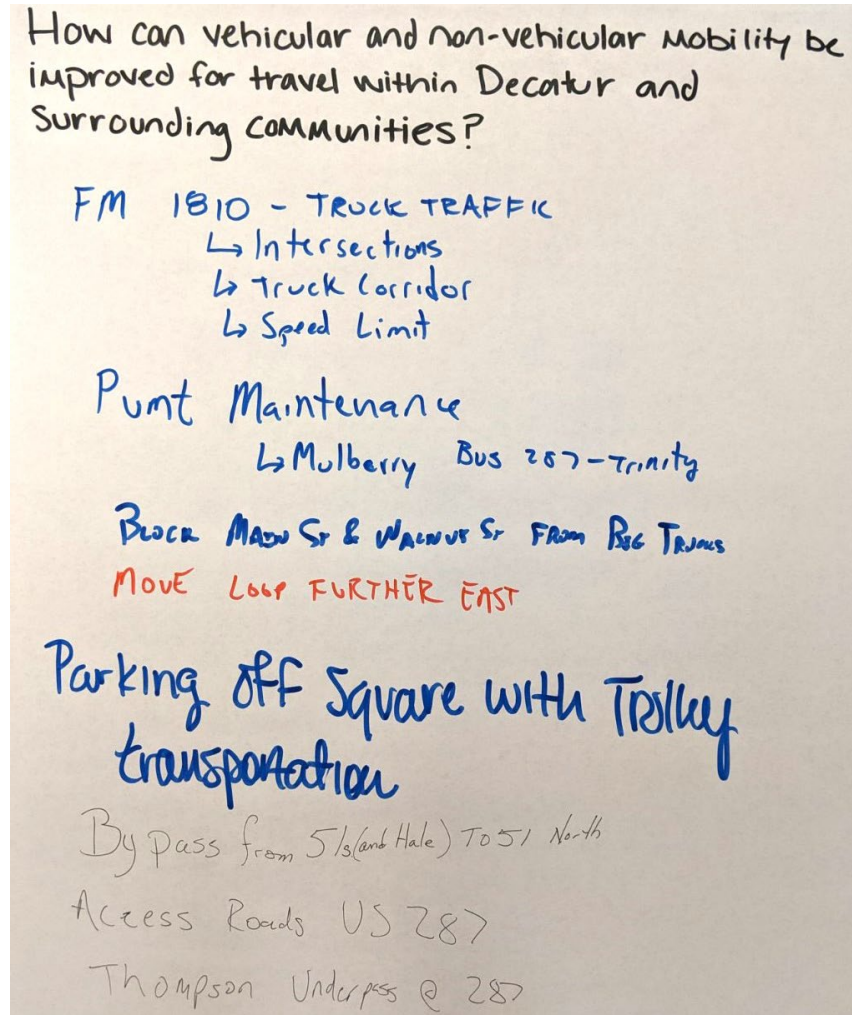 How can vehicular and non-vehicular Mobility be
improved for travel within Decatur and
Surrounding Communities?
FM 1810 - TRUCK TRAFFIC
↳ Intersections
↳ Truck Corridor
↳ Speed Limit
Pvmt Maintenance
↳ Mulberry Bus 287-Trinity
BLOCK MAIN ST & WALNUT ST FROM BIG TRUCKS
MOVE LOOP FURTHER EAST
Parking off Square with Trolley
transportation
By pass from 51s(and Hale) TO 51 North
Access Roads US 287
Thompson Underpass @ 287